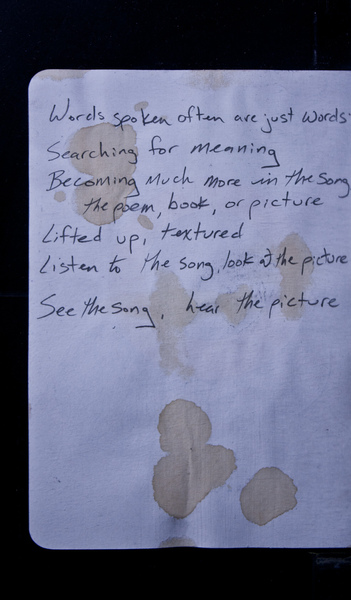 Words spoken often are just words
Searching for meaning
Becoming Much more in the song
the poem, book, or picture
Lifted up, textured
Listen to the song, look at the picture
See the song, hear the picture